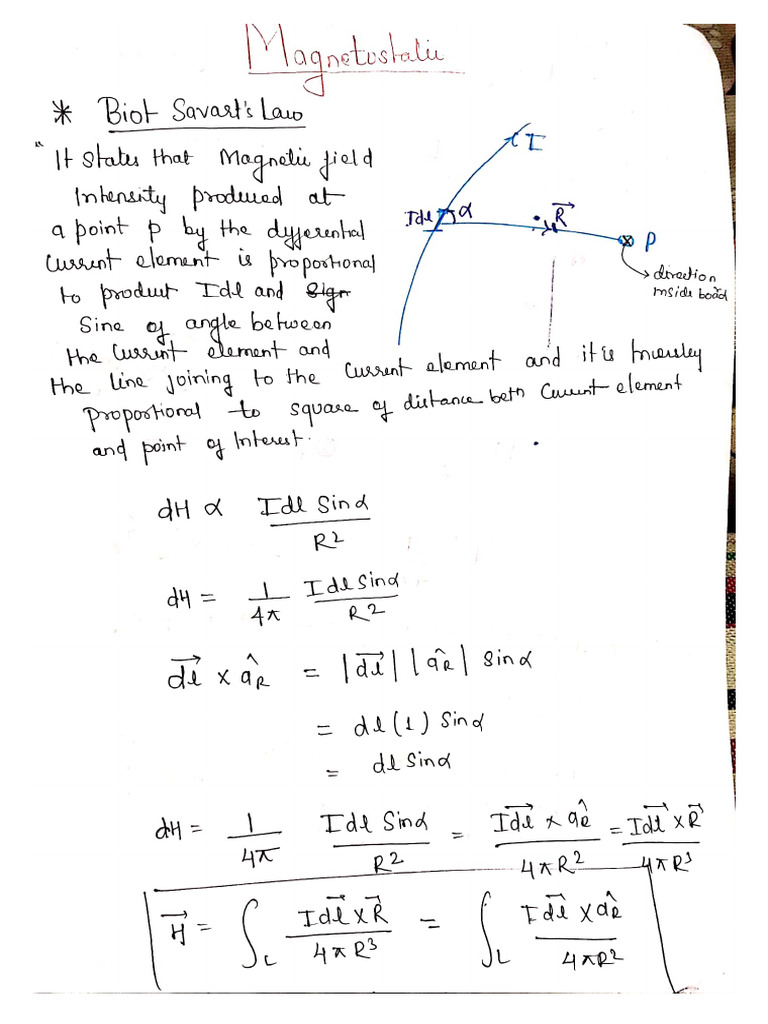 Magnetostatic
* Biot Savart's Law
"It states that Magnetic field
Intensity produced at
a point p by the differential
Current element is proportional
to product Idl and Sign
Sine of angle between
the Current element and
the line joining to the Current element and it is Inversley
Proportional to square of distance betn Current element
and point of Interest.
I
Idl α R⃗ P
direction
inside board
dH ∝ Idl Sinα / R²
dH = 1/4π Idl Sinα / R²
d⃗l × âR = |d⃗l| |âR| Sinα
= dl(1) Sinα
= dl Sinα
dH = 1/4π Idl Sinα / R² = Id⃗l × âR / 4πR² = Id⃗l × R⃗ / 4πR³
H⃗ = ∫L Id⃗l × R⃗ / 4πR³ = ∫L Id⃗l × âR / 4πR²